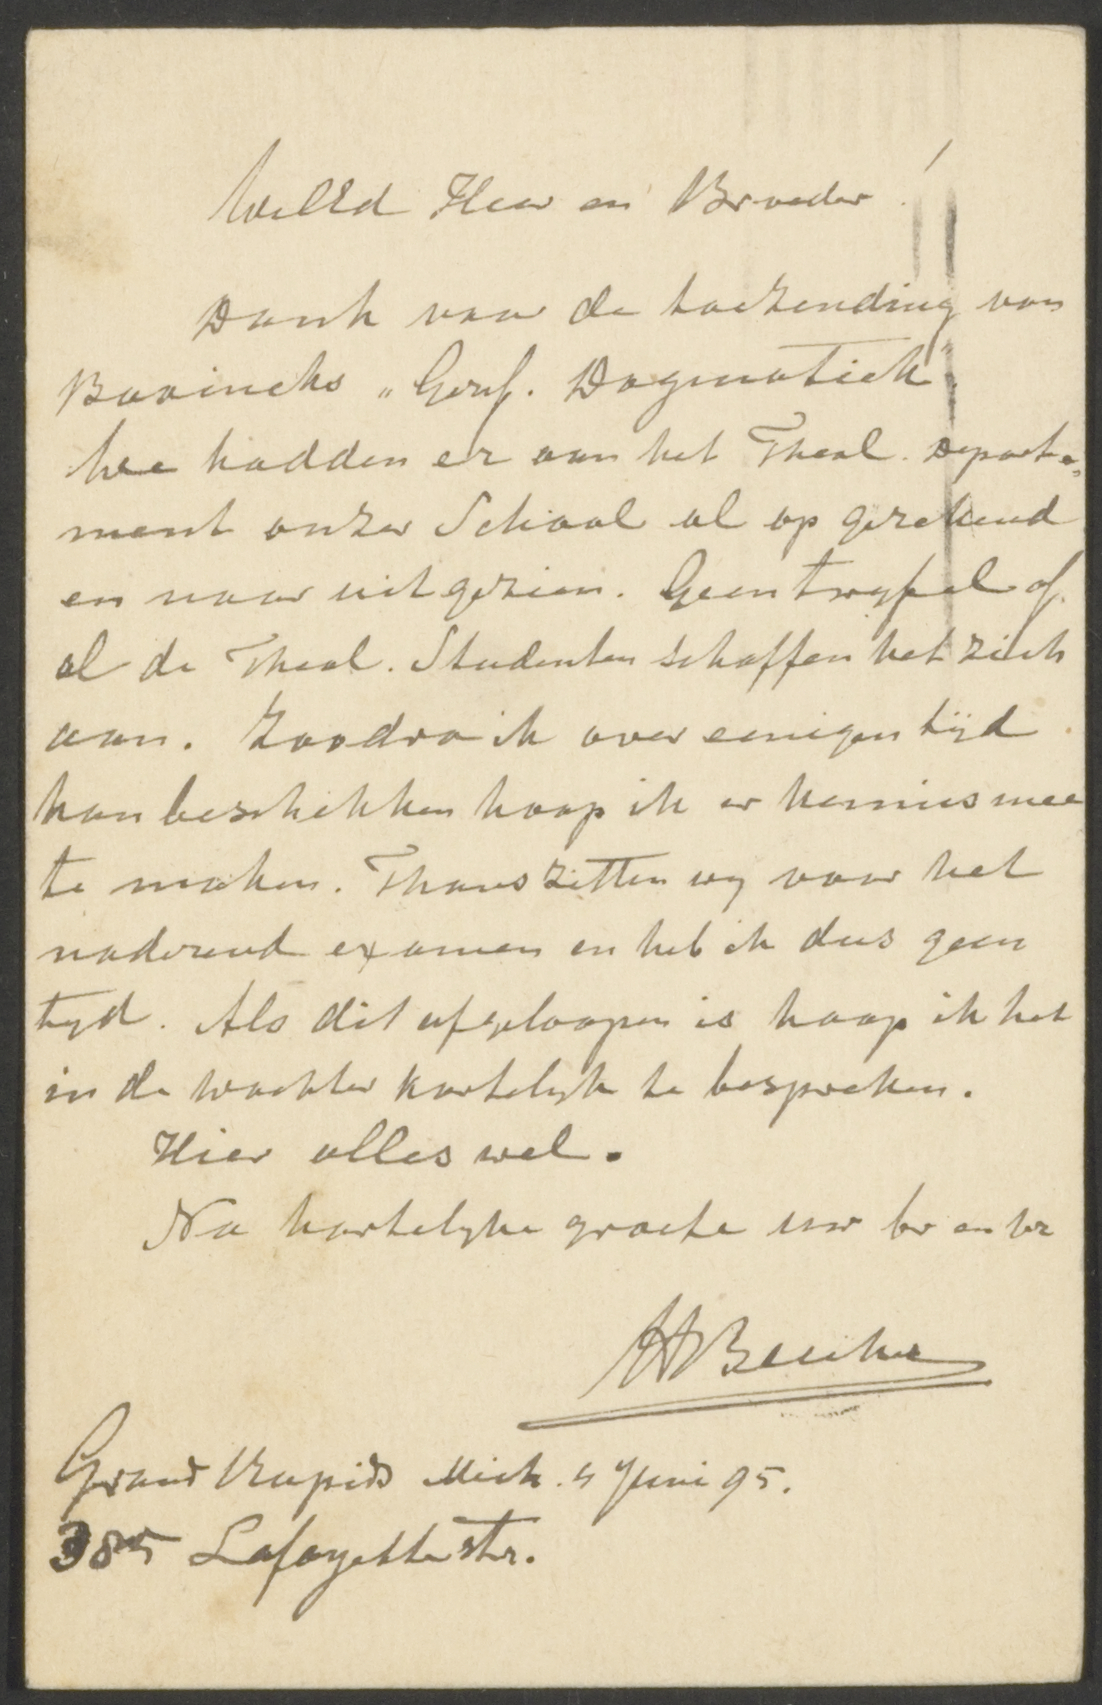 WelEd Heer en Broeder!
Dank voor de toezending van
Bavincks „Geref. Dogmatiek".
We hadden er aan het Theol. Departe„
ment onzer School al op gerekend
en naar uitgezien. Geen twyfel of
al de Theol. Studenten schaffen het zich
aan. Zoodra ik over eenigen tijd
kan beschikken hoop ik er kennis mee
te maken. Thans zitten wy voor het
naderend examen en heb ik dus geen
tyd. Als dit afgeloopen is hoop ik het
in de Wachter kortelyk te bespreken.
Hier alles wel.
Na hartelyke groete uw br en vr
HBeuker
Grand Rapids Mich. 4 Juni 95.
385 Lafayette str.